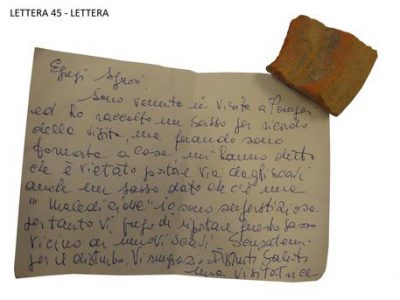 LETTERA 45 - LETTERA
Egregi Signori
Sono venuta in visita a Pompei
ed ho raccolto un sasso per ricordo
della visita, ma quando sono
tornata a casa, mi hanno detto
che è vietato portare via dagli scavi
anche un sasso dato che c'è una
"maledizione" io sono superstiziosa
pertanto vi prego di riportare questo sasso
vicino ai nuovi scavi. Scusatemi
per il disturbo. Vi ringrazio. Distinti Saluti
una visitatrice